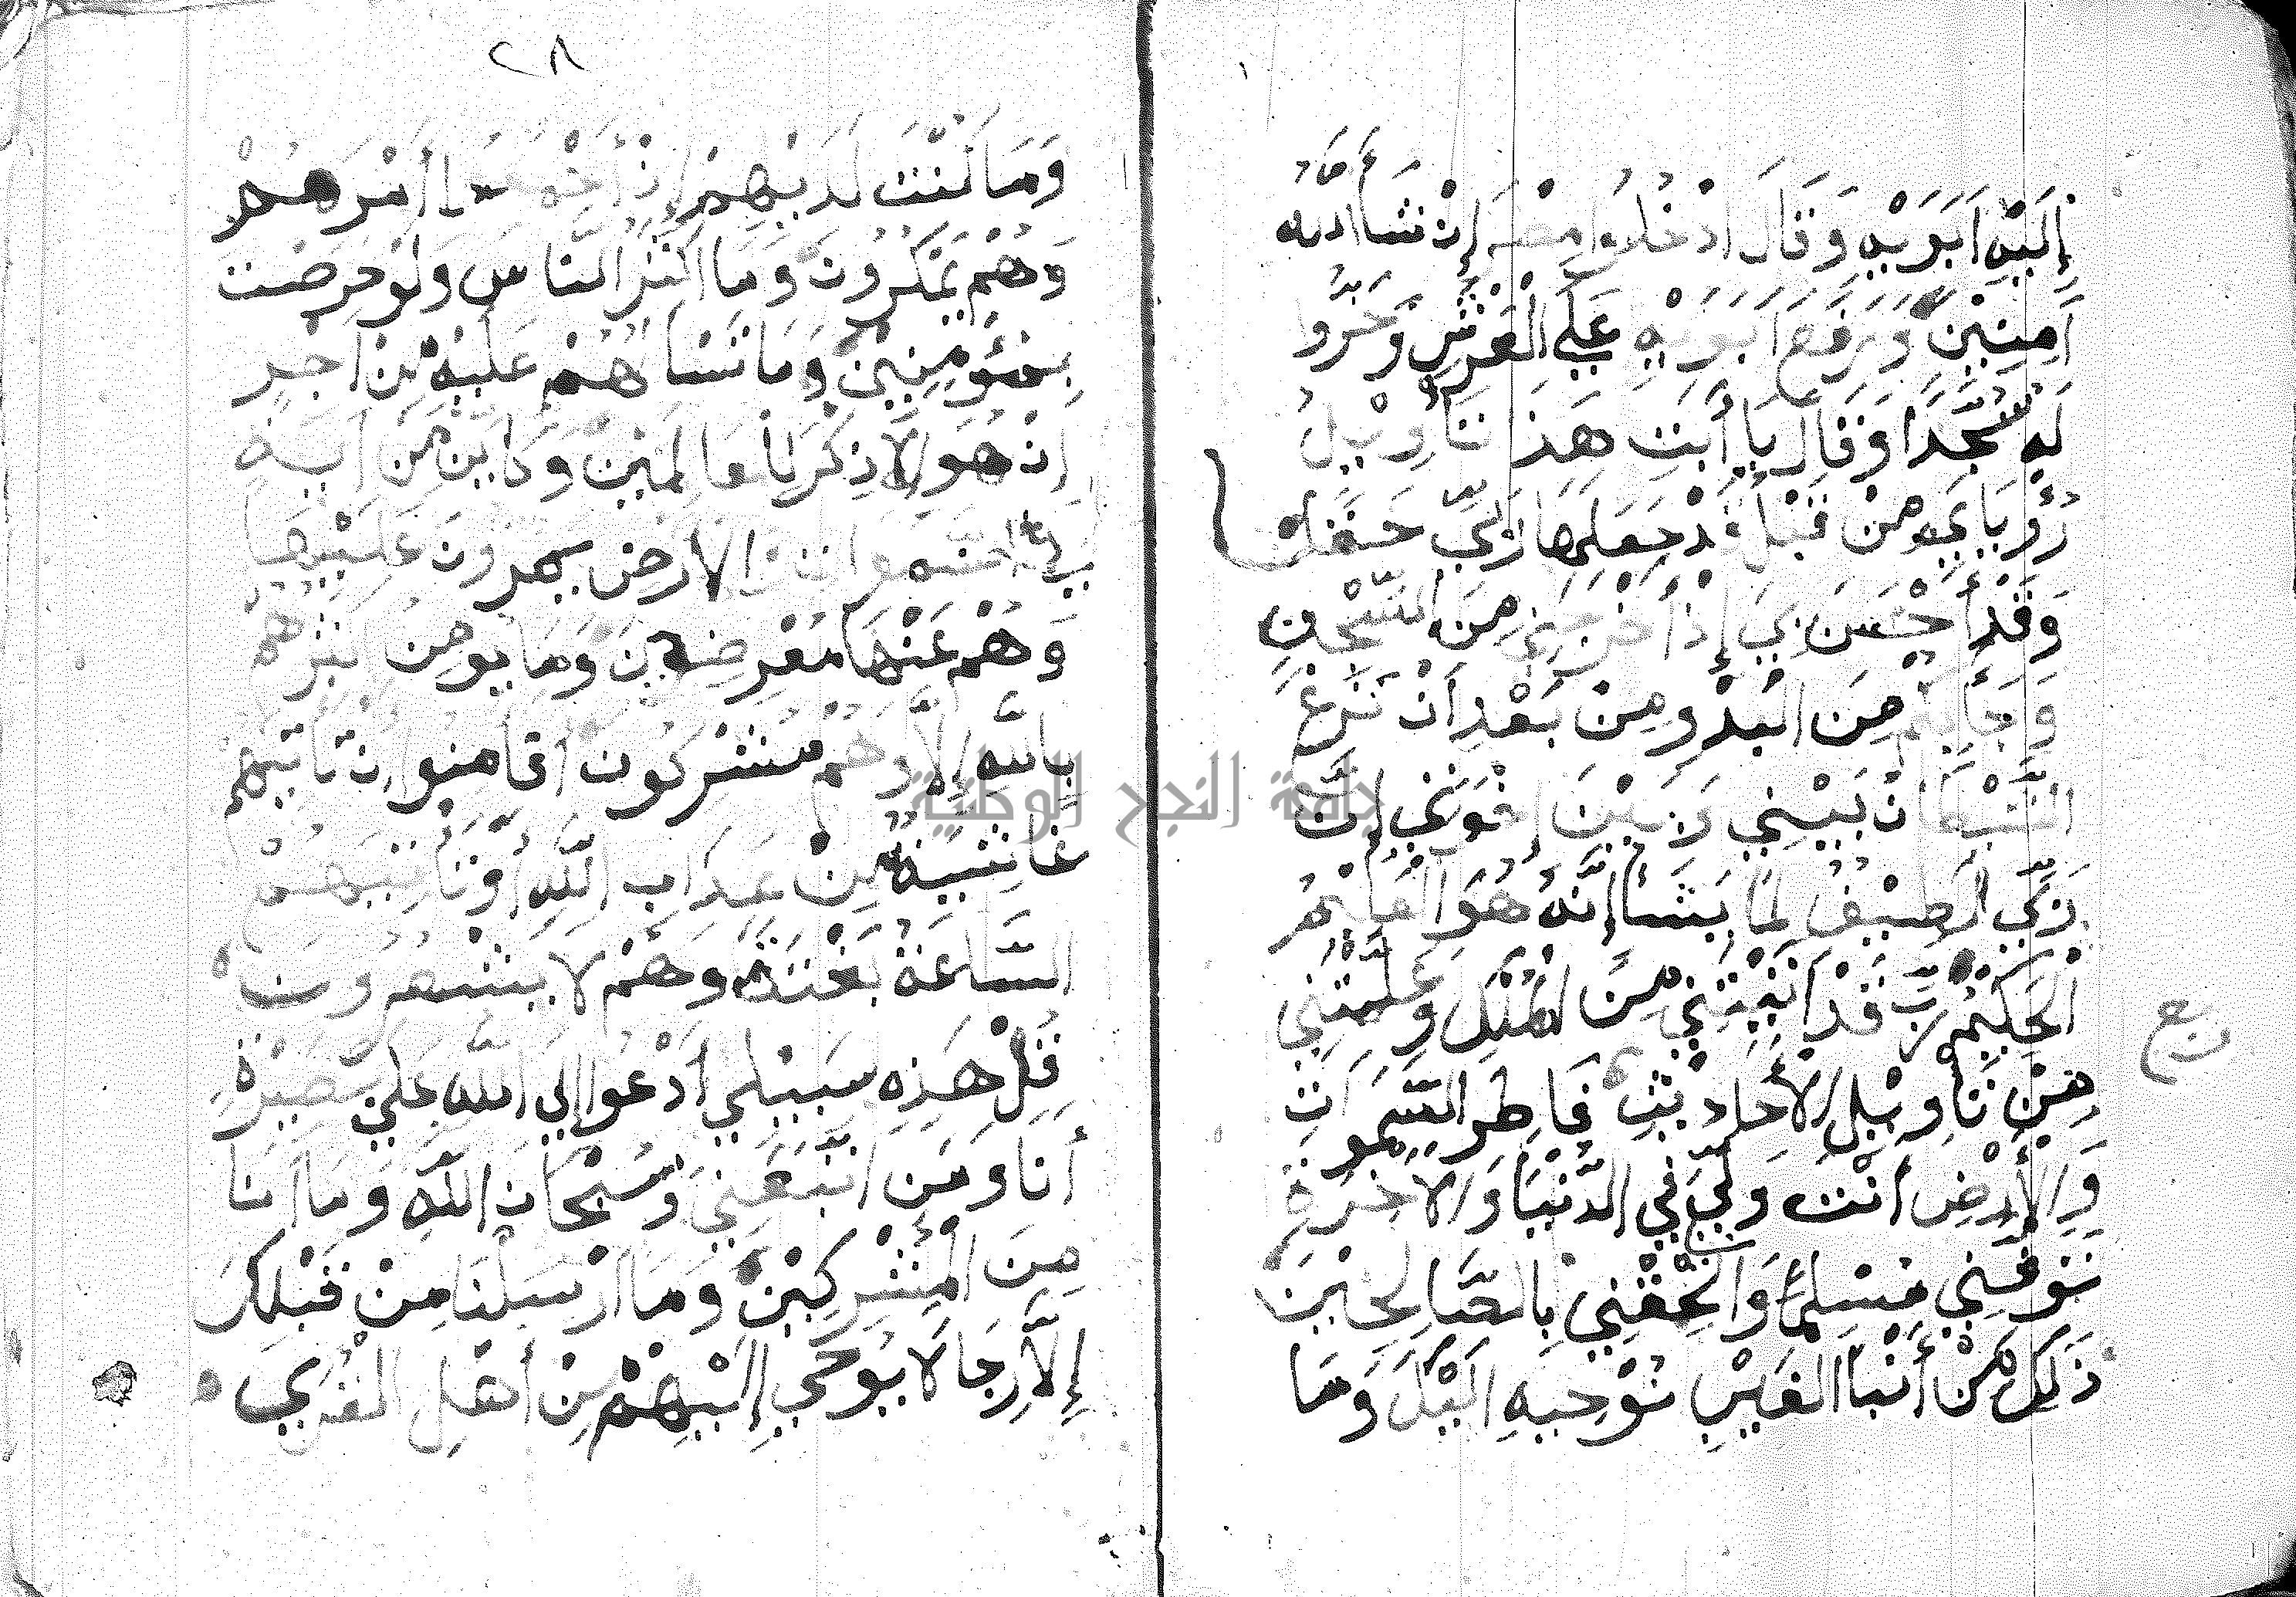 إِلَيْهِ اَبَوَيْهِ وَقَالَ ادْخُلُوا مِصْرَ إِنْ شَأَ الله
آمِنِيْنَ وَرَفَعَ اَبَوَيْهِ عَلَى الْعَرْشِ وَخَرُّوا
لَهُ سُجَّدًا وَقَالَ يَا أَبَتِ هَذَا تَأْوِيْلُ
رُؤْيَايَ مِنْ قَبْلُ قَدْ جَعَلَهَا رَبِّي حَقًّا
وَقَدْ أَحْسَنَ بِي إِذْ أَخْرَجَنِي مِنَ السِّجْنِ
وَجَأَبِكُمْ مِنَ الْبَدْوِ مِنْ بَعْدِ اَنْ نَزَغَ
الشَّيْطَانُ بَيْنِي وَبَيْنَ إِخْوَتِي إِنَّ
رَبِّي لَطِيْفٌ لِمَا يَشَأُ إِنَّهُ هُوَ الْعَلِيْمُ
الْحَكِيْمُ رَبِّ قَدْ اَتَيْتَنِي مِنَ الْمُلْكِ وَعَلَّمْتَنِي
مِنْ تَأْوِيْلِ الأَحَادِيْثِ فَاطِرَ السَّموَاتِ
وَالأَرْضِ أَنْتَ وَلِيِّ فِي الدُّنْيَا وَالاَخِرَةِ
تَوَفَّنِي مُسْلِمًا وَالْحِقْنِي بِالصَّالِحِيْنَ
ذَلِكَ مِنْ أَنْبَا الْغَيْبِ نُوْحِيهِ اِلَيْكَ وَمَا
ربع
٢٨
وَمَا كُنْتَ لَدَيْهِمْ إِذْ أَجْمَعُوا أَمْرَهُمْ
وَهُمْ يَمْكُرُونَ وَمَا اكْثَرُ النَّاسِ وَلَوْ حَرَصْتَ
بِمُؤْمِنِيْنَ وَمَا تَسْأَلُهُمْ عَلَيْهِ مِنْ اَجْرٍ
اِنْ هُوَ اِلاَّ ذِكْرٌ لِلْعَالَمِيْنَ وَكَايِنْ مِنْ اَيَةٍ
فِي السَّموَاتِ وَالاَرْضِ يَمُرُّونَ عَلَيْهَا
وَهُمْ عَنْهَا مُعْرِضُونَ وَمَا يُومِنُ اَكْثَرُهُمْ
بِاللَّهِ إِلاَّ وَهُمْ مُشْرِكُونَ اَفَامِنُوا اَنْ تَاتِيَهُمْ
غَاشِيَةٌ مِنْ عَذَابِ اللَّهِ أَوْتَأْتِيَهُمُ
السَّاعَةُ بَغْتَةً وَهُمْ لاَ يَشْعُرُونَ
قُلْ هَذِهِ سَبِيْلِي اَدْعُوا إِلَى اللَّهِ عَلَى بَصِيْرَةٍ
أَنَا وَمَنِ اتَّبَعَنِي وَسُبْحَانَ اللَّهِ وَمَا اَنَا
مِنَ الْمُشْرِكِيْنَ وَمَا اَرْسَلْنَا مِنْ قَبْلِكَ
إِلاَّ رِجَالاً يُوحَي إِلَيْهِمْ مِنْ أَهْلِ الْقُرَي
جامعة النجاح الوطنية